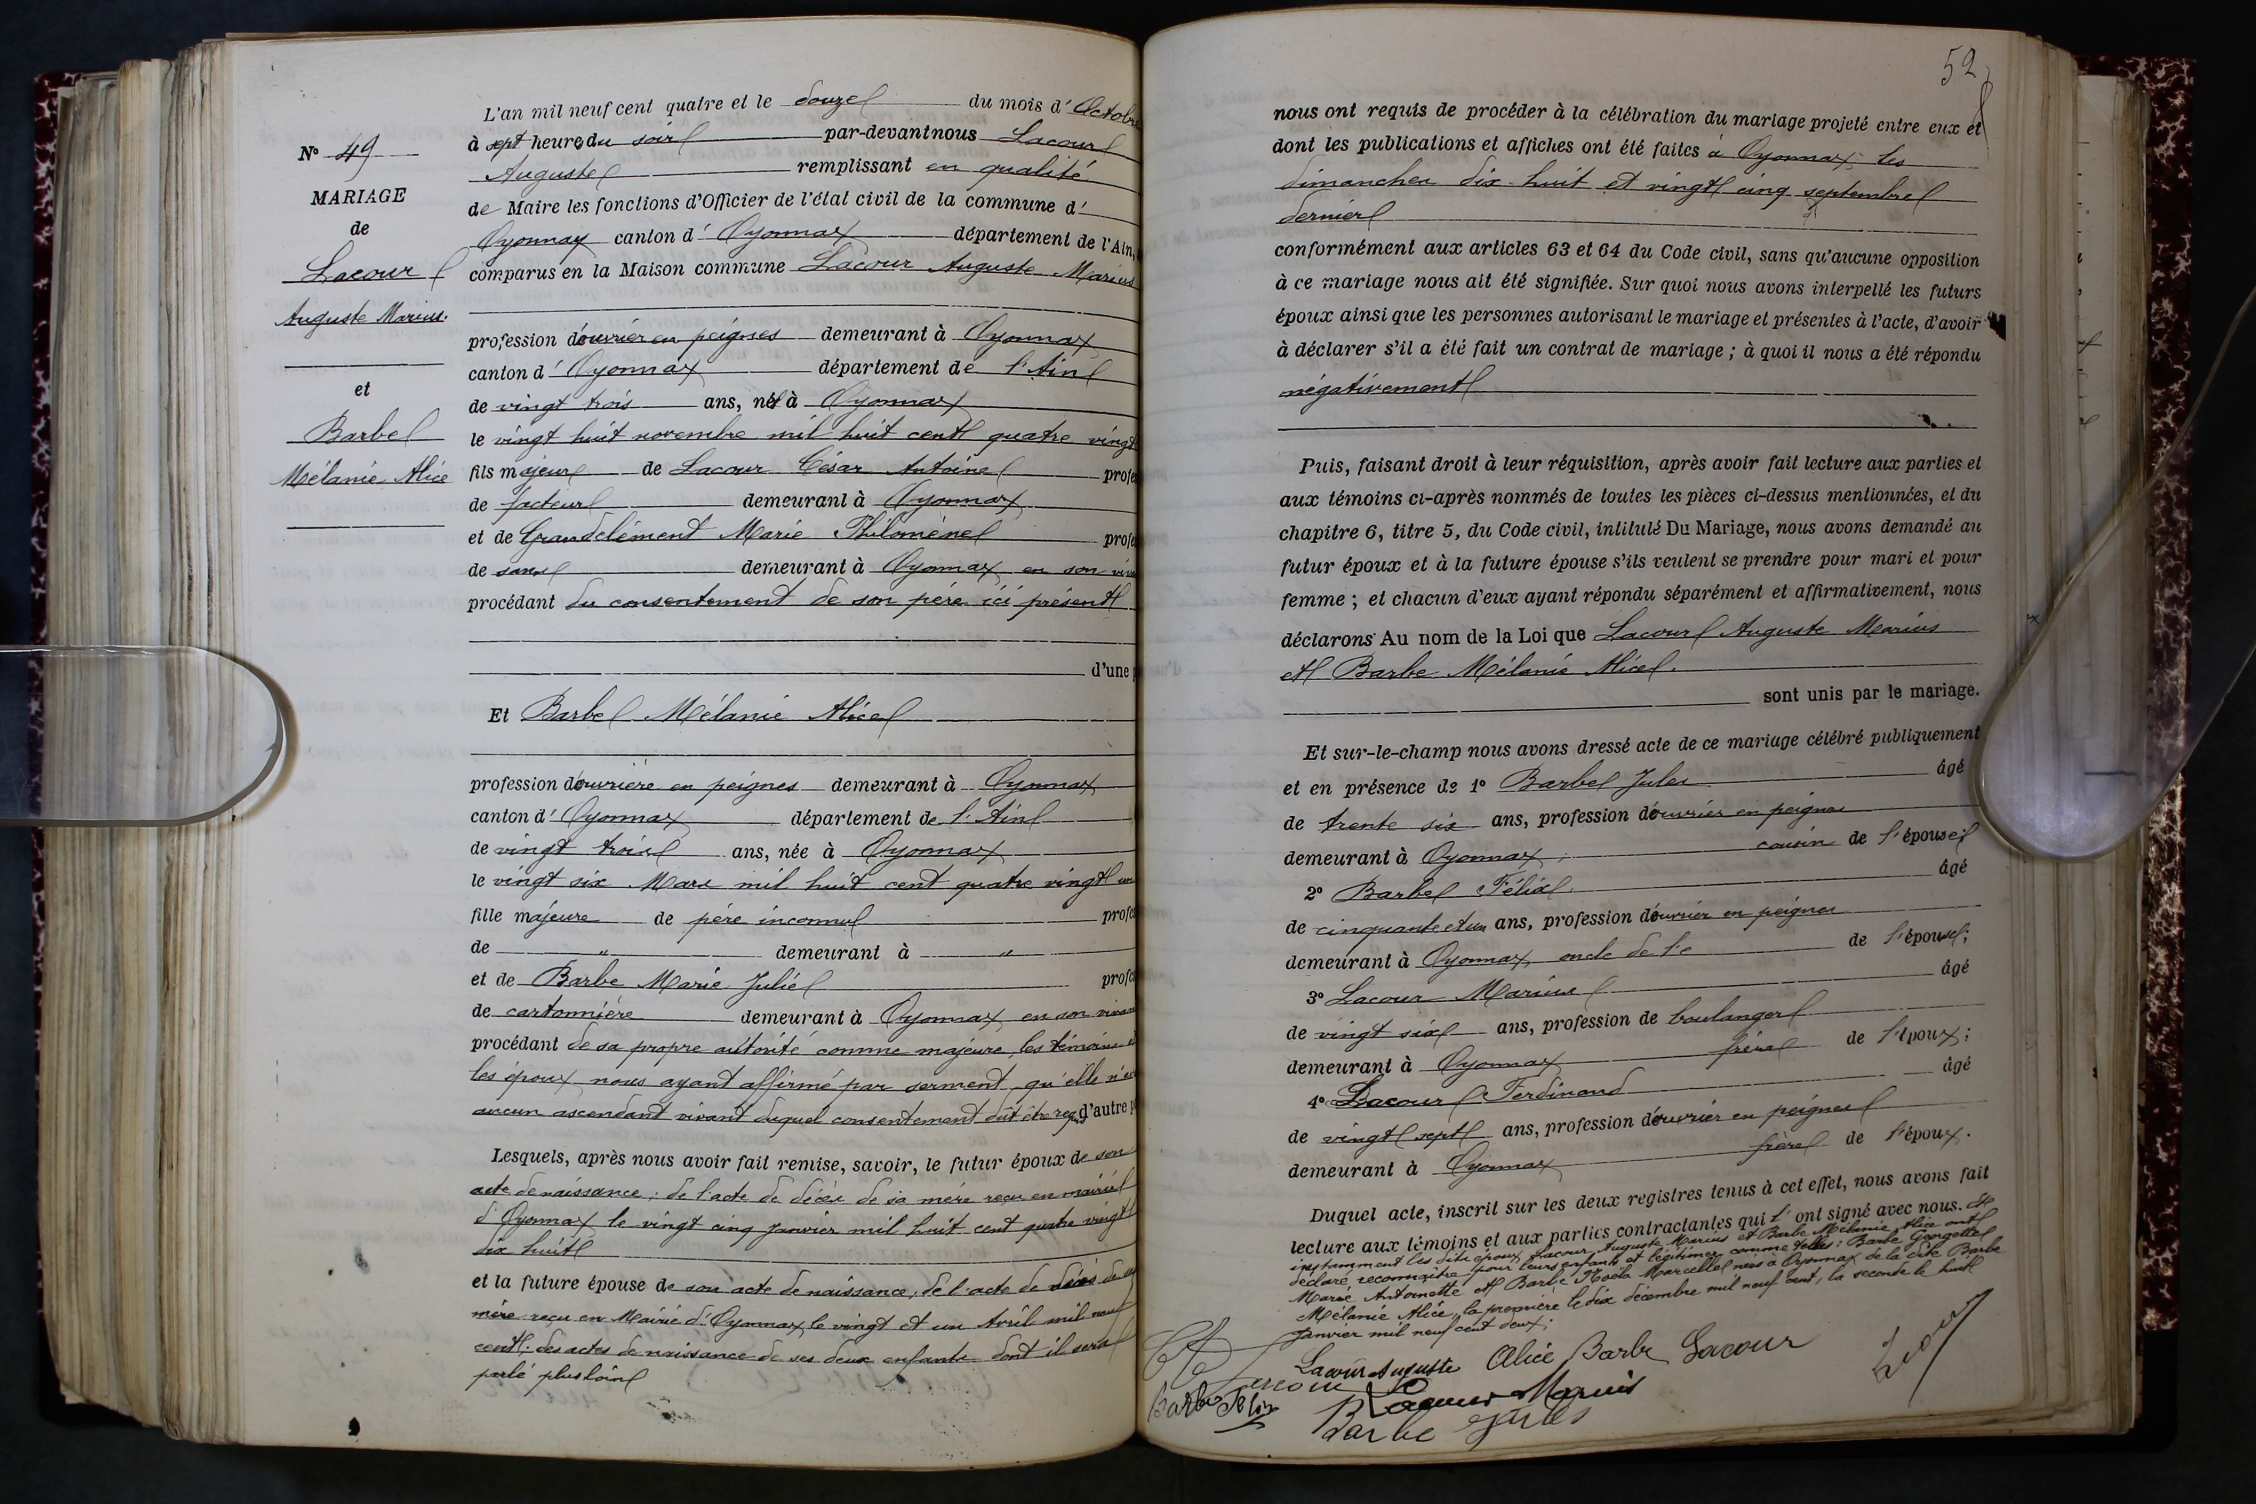 N° 49
MARIAGE
de
Lacour
Auguste Marius.
et
Barbe
Mélanie Alice
L'an mil neuf cent quatre et le douze du mois d' Octobre
à sept heures du soir par-devant nous Lacour
Auguste remplissant en qualité
de Maire les fonctions d'Officier de l'état civil de la commune d'
Oyonnax canton d' Oyonnax département de l'Ain,
comparus en la Maison commune Lacour Auguste Marius
profession d'ouvrier en peignes demeurant à Oyonnax
canton d' Oyonnax département de l'Ain
de vingt trois ans, né à Oyonnax
le vingt huit novembre mil huit cent quatre vingt
fils majeur de Lacour César Antoine profes
de facteur demeurant à Oyonnax
et de Grandclément Marie Philomène profes
de sans demeurant à Oyonnax en son viv
procédant du consentement de son père ici présent
d'une p
Et Barbe Mélanie Alice
profession d'ouvrière en peignes demeurant à Oyonnax
canton d' Oyonnax département de l'Ain
de vingt trois ans, née à Oyonnax
le vingt six Mars mil huit cent quatre vingt un
fille majeure de père inconnu profes
de " demeurant à "
et de Barbe Marie Julie profes
de cartonnière demeurant à Oyonnax en son vivant
procédant de sa propre autorité comme majeure, les témoins et
les époux nous ayant affirmé par serment qu'elle n'a
aucun ascendant vivant duquel consentement dût être requis d'autre p
Lesquels, après nous avoir fait remise, savoir, le futur époux de son
acte de naissance ; de l'acte de décès de sa mère reçu en mairie
d'Oyonnax le vingt cinq janvier mil huit cent quatre vingt
dix huit
et la future épouse de son acte de naissance, de l'acte de décès de sa
mère reçu en Mairie d'Oyonnax le vingt et un Avril mil neuf
cent ; des actes de naissance de ses deux enfants dont il sera
parlé plus loin
52
nous ont requis de procéder à la célébration du mariage projeté entre eux et
dont les publications et affiches ont été faites à Oyonnax les
dimanches dix huit et vingt cinq septembre
dernier
conformément aux articles 63 et 64 du Code civil, sans qu'aucune opposition
à ce mariage nous ait été signifiée. Sur quoi nous avons interpellé les futurs
époux ainsi que les personnes autorisant le mariage et présentes à l'acte, d'avoir
à déclarer s'il a été fait un contrat de mariage ; à quoi il nous a été répondu
négativement
Puis, faisant droit à leur réquisition, après avoir fait lecture aux parties et
aux témoins ci-après nommés de toutes les pièces ci-dessus mentionnées, et du
chapitre 6, titre 5, du Code civil, intitulé Du Mariage, nous avons demandé au
futur époux et à la future épouse s'ils veulent se prendre pour mari et pour
femme ; et chacun d'eux ayant répondu séparément et affirmativement, nous
déclarons Au nom de la Loi que Lacour Auguste Marius
et Barbe Mélanie Alice.
sont unis par le mariage.
Et sur-le-champ nous avons dressé acte de ce mariage célébré publiquement
et en présence de 1° Barbe Jules âgé
de trente six ans, profession d'ouvrier en peignes
demeurant à Oyonnax, cousin de l'épouse ;
2° Barbe Félix âgé
de cinquante et un ans, profession d'ouvrier en peignes
demeurant à Oyonnax, oncle de l'e de l'épouse ;
3° Lacour Marius âgé
de vingt six ans, profession de boulanger
demeurant à Oyonnax frère de l'époux ;
4° Lacour Ferdinand âgé
de vingt sept ans, profession d'ouvrier en peignes
demeurant à Oyonnax frère de l'époux.
Duquel acte, inscrit sur les deux registres tenus à cet effet, nous avons fait
lecture aux témoins et aux parties contractantes qui l'ont signé avec nous. Et
instamment les dits époux Lacour Auguste Marius et Barbe Mélanie Alice ont
déclaré reconnaître pour leurs enfants et légitimer comme telles : Barbe Georgette
Marie Antoinette et Barbe Noëla Marcelle nées à Oyonnax de la dite Barbe
Mélanie Alice, la première le dix décembre mil neuf cent, la seconde le huit
janvier mil neuf cent deux ;
Lacour Auguste Alice Barbe Lacour
Lacour
Barbe Félix Lacour Marius
Barbe Jules